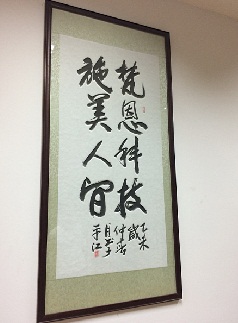 梵恩科技
施美人間
乙未
歲
仲春